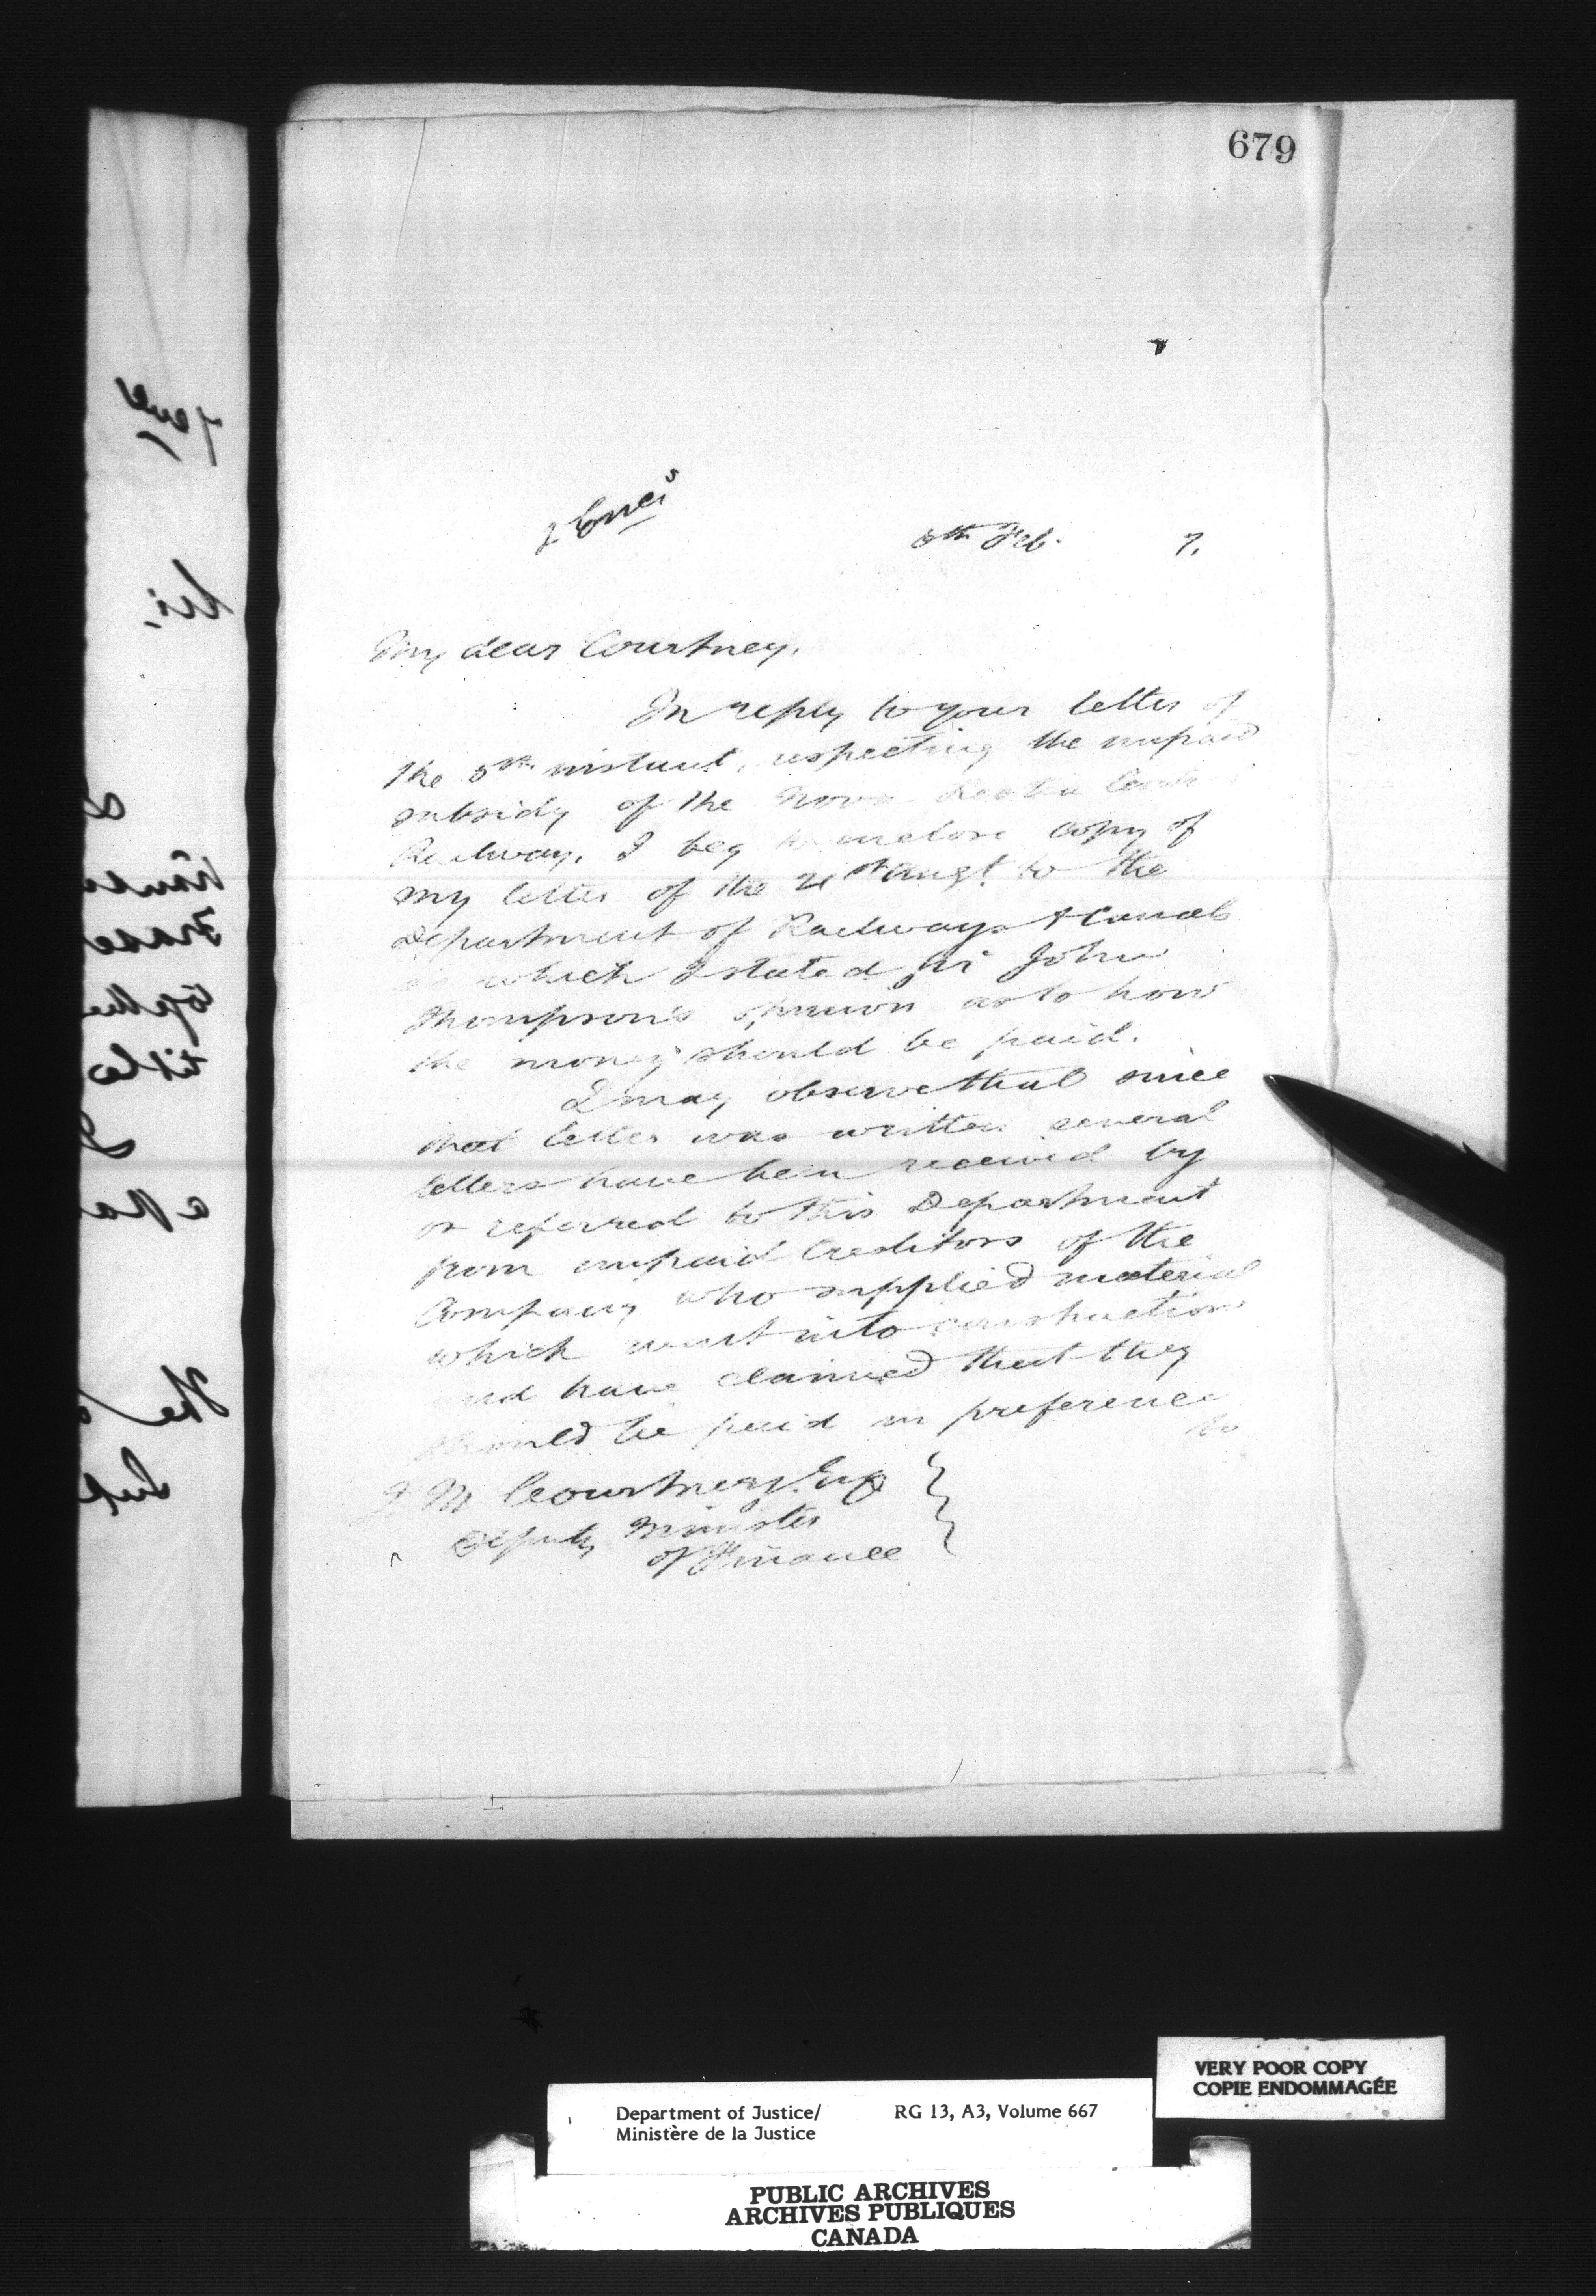 679
2 Encs
5th Feb. 7.
My dear Courtney,
In reply to your letter of
the 5th instant, respecting the unpaid
subsidy of the Nova Scotia Cent
Railway, I beg to enclose copy of
my letter of the 21st Augt. to the
Department of Railways & Canals
in which I stated Sir John
Thompson's opinion as to how
the money should be paid.
I may observe that since
that letter was written several
letters have been received by
or referred to this Department
from unpaid Creditors of the
Company who supplied material
which went into construction
and have claimed that they
should be paid in preference
to
J. M. Courtney, Esq
Deputy Minister
of Finance
VERY POOR COPY
COPIE ENDOMMAGÉE
Department of Justice/ RG 13, A3, Volume 667
Ministère de la Justice
PUBLIC ARCHIVES
ARCHIVES PUBLIQUES
CANADA